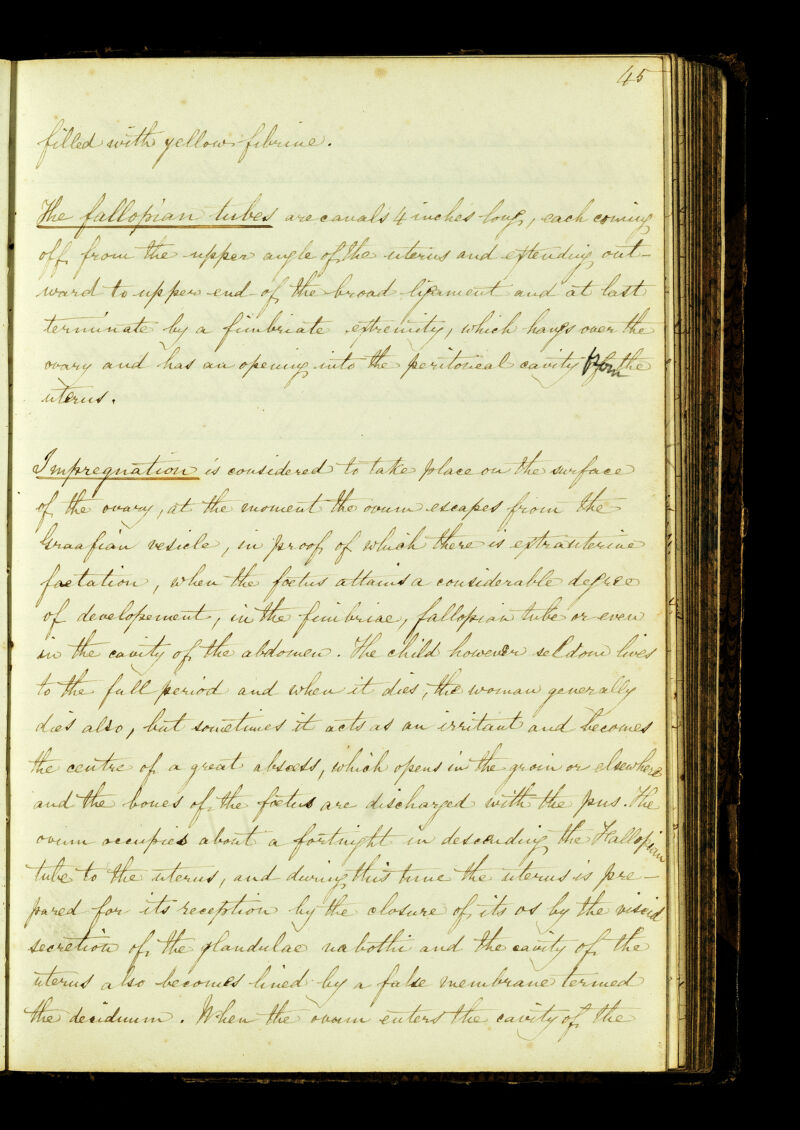 45
filled with yellow fibrine.
The fallopian tubes are canals 4 inches long, each coming
off from the upper angle of the uterus and extending out-
ward to upper end of the broad ligament and at last
terminate by a fimbriate extremity, which hangs over the
ovary and has an opening into the peritoneal cavity from the
uterus.
Impregnation is considered to take place on the surface
of the ovary, at the moment the ovum escapes from the
Graafian vesicle, in proof of which there is extrauterine
faetation, when the foetus attains a considerable degree
of developement, in the fimbriae, fallopian tube or even
in the cavity of the abdomen. The child however seldom lives
to the full period and when it dies, the woman generally
dies also, but sometimes it acts as an irritant and becomes
the centre of a great abscess, which opens in the groin or elsewhere
and the bones of the foetus are discharged with the pus. The
ovum occupies about a fortnight in descending the Fallopian
tube to the uterus, and during this time the uterus is pre-
pared for its reception by the closure of its os by the viscid
secretion of the glandulae nabothi and the cavity of the
uterus also becomes lined by a false membrane termed
the deciduum. When the ovum enters the cavity of the